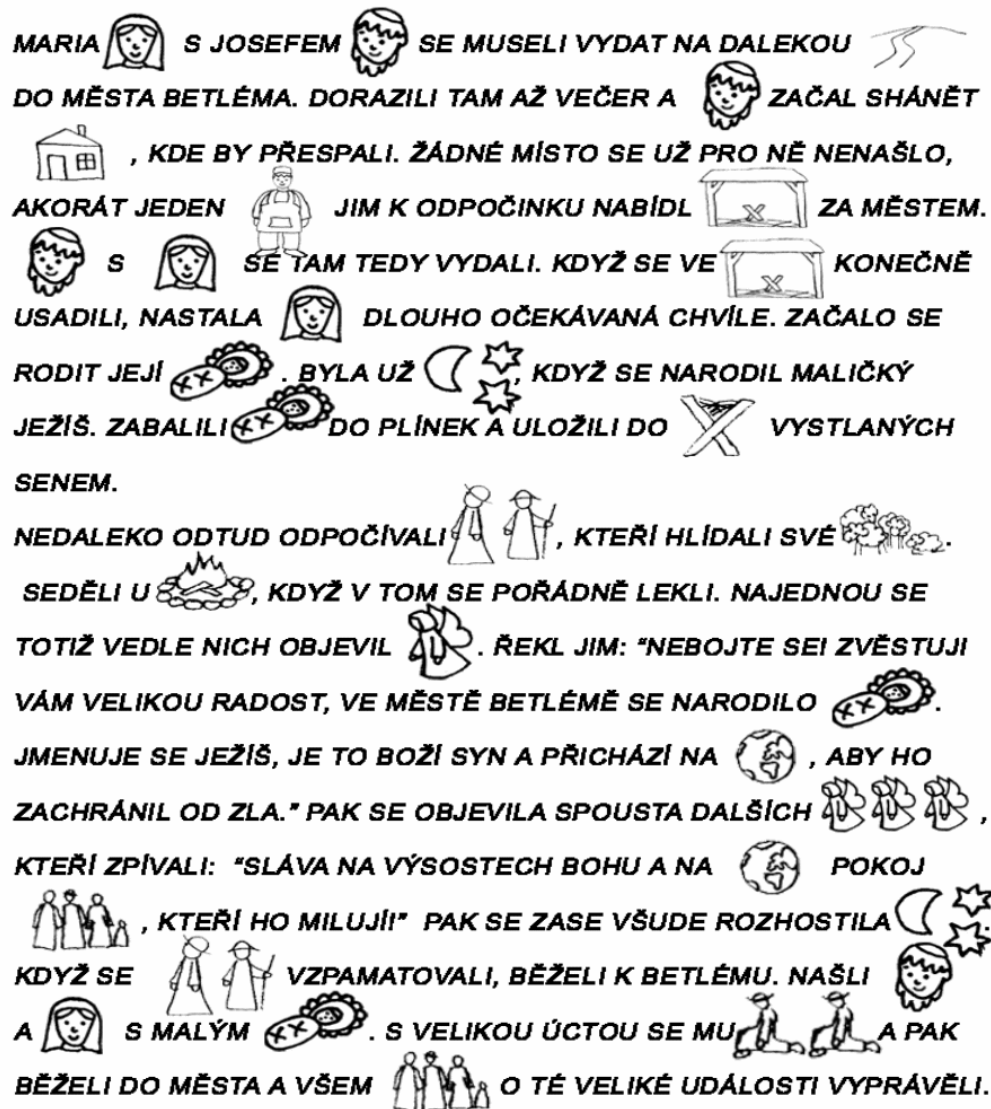 MARIA S JOSEFEM SE MUSELI VYDAT NA DALEKOU
DO MĚSTA BETLÉMA. DORAZILI TAM AŽ VEČER A ZAČAL SHÁNĚT
, KDE BY PŘESPALI. ŽÁDNÉ MÍSTO SE UŽ PRO NĚ NENAŠLO,
AKORÁT JEDEN JIM K ODPOČINKU NABÍDL ZA MĚSTEM.
S SE TAM TEDY VYDALI. KDYŽ SE VE KONEČNĚ
USADILI, NASTALA DLOUHO OČEKÁVANÁ CHVÍLE. ZAČALO SE
RODIT JEJÍ . BYLA UŽ , KDYŽ SE NARODIL MALIČKÝ
JEŽÍŠ. ZABALILI DO PLÍNEK A ULOŽILI DO VYSTLANÝCH
SENEM.
NEDALEKO ODTUD ODPOČÍVALI , KTEŘÍ HLÍDALI SVÉ .
SEDĚLI U , KDYŽ V TOM SE POŘÁDNĚ LEKLI. NAJEDNOU SE
TOTIŽ VEDLE NICH OBJEVIL . ŘEKL JIM: "NEBOJTE SE! ZVĚSTUJI
VÁM VELIKOU RADOST, VE MĚSTĚ BETLÉMĚ SE NARODILO .
JMENUJE SE JEŽÍŠ, JE TO BOŽÍ SYN A PŘICHÁZÍ NA , ABY HO
ZACHRÁNIL OD ZLA." PAK SE OBJEVILA SPOUSTA DALŠÍCH ,
KTEŘÍ ZPÍVALI: "SLÁVA NA VÝSOSTECH BOHU A NA POKOJ
, KTEŘÍ HO MILUJÍ!" PAK SE ZASE VŠUDE ROZHOSTILA .
KDYŽ SE VZPAMATOVALI, BĚŽELI K BETLÉMU. NAŠLI
A S MALÝM . S VELIKOU ÚCTOU SE MU A PAK
BĚŽELI DO MĚSTA A VŠEM O TÉ VELIKÉ UDÁLOSTI VYPRÁVĚLI.